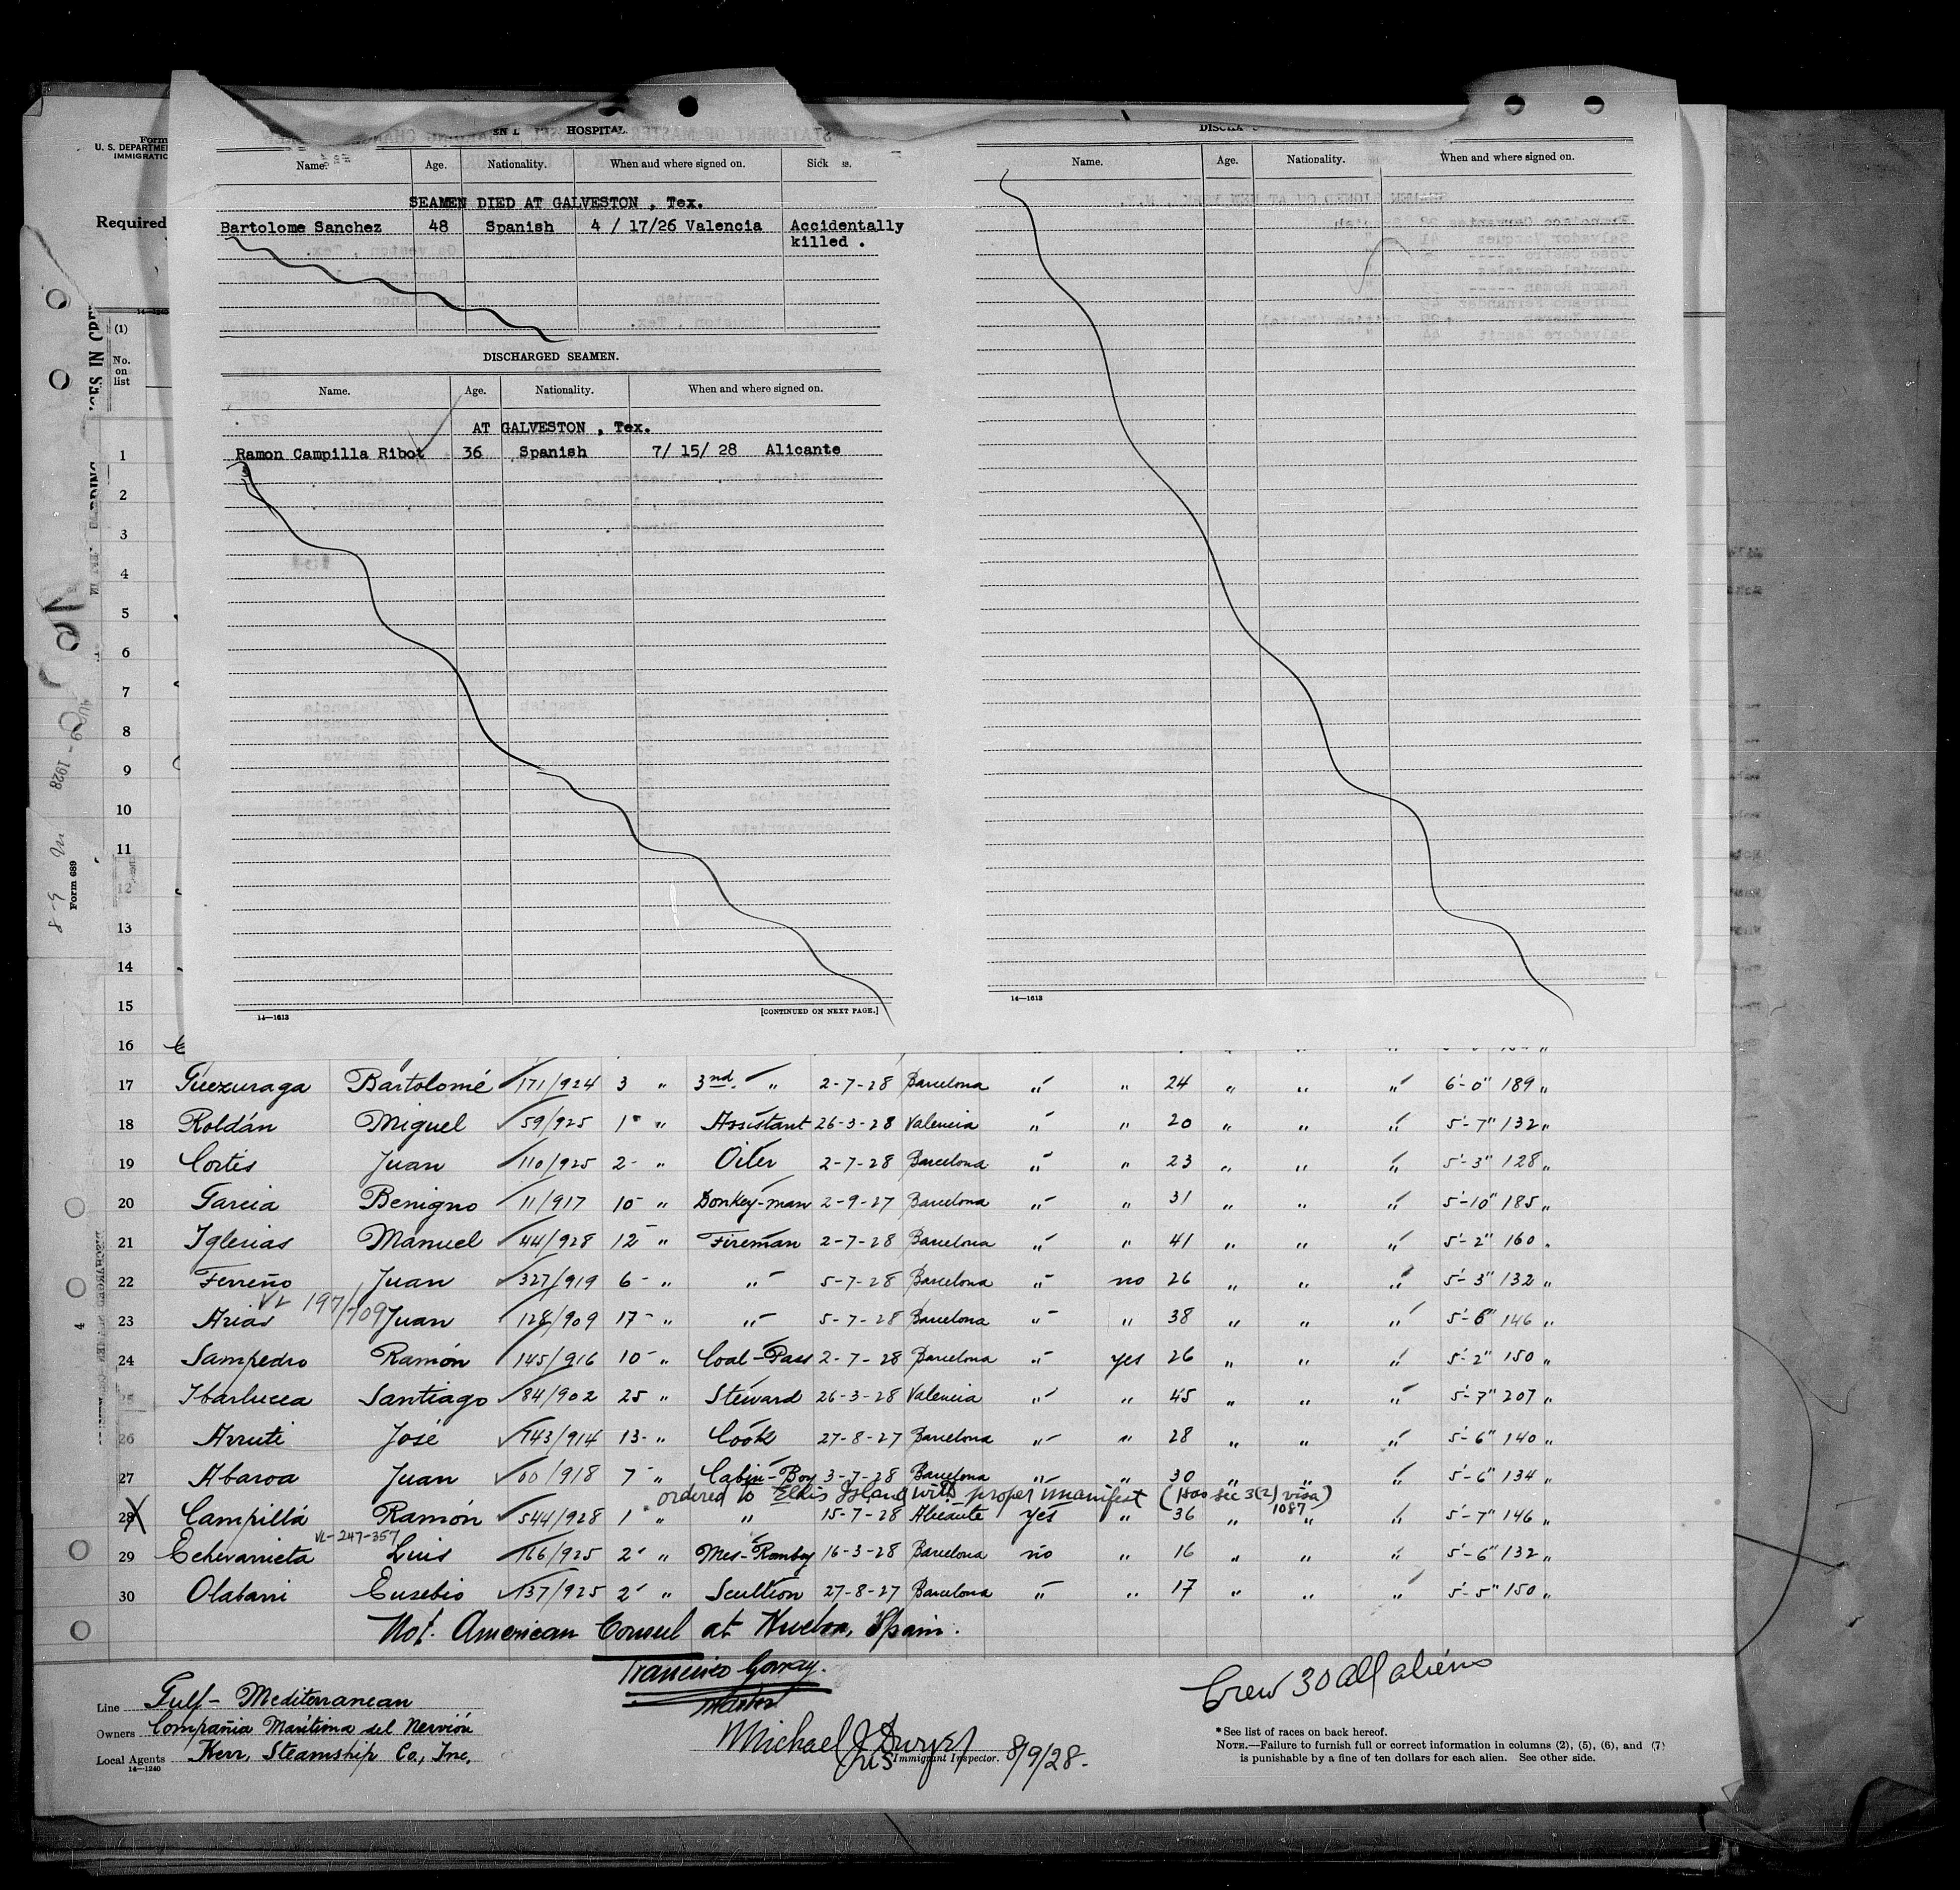 HOSPITAL.
Name. Age. Nationality. When and where signed on. Sick
SEAMEN DIED AT GALVESTON , Tex.
Bartolome Sanchez 48 Spanish 4 / 17/26 Valencia Accidentally
killed .
DISCHARGED SEAMEN.
Name. Age. Nationality. When and where signed on.
AT GALVESTON , Tex.
Ramon Campilla Ribot 36 Spanish 7/ 15/ 28 Alicante
14—1613 [CONTINUED ON NEXT PAGE.]
Name. Age. Nationality. When and where signed on.
14—1613
Form
U. S. DEPARTME
IMMIGRATIO
Required
(1)
No.
on
list
1
2
3
4
5
6
7
8
9
10
11
12
13
14
15
16
Form 689
17 Guezuraga Bartolomé 171/924 3 " 3nd. " 2-7-28 Barcelona " " 24 " " " 6'-0" 189 "
18 Roldán Miguel 59/925 1 " Assistant 26-3-28 Valencia " " 20 " " " 5'-7" 132 "
19 Cortés Juan 110/925 2- " Oiler 2-7-28 Barcelona " " 23 " " " 5'-3" 128 "
20 Garcia Benigno 11/917 10- " Donkey-man 2-9-27 Barcelona " " 31 " " " 5'-10" 185 "
21 Iglesias Manuel 44/928 12- " Fireman 2-7-28 Barcelona " " 41 " " " 5'-2" 160 "
22 Ferreño Juan 327/919 6- " " 5-7-28 Barcelona " no 26 " " " 5'-3" 132 "
VL 197/709
23 Arias Juan 128/909 17- " " 5-7-28 Barcelona " " 38 " " " 5'-6" 146 "
24 Sampedro Ramón 145/916 10- " Coal-Pass 2-7-28 Barcelona " yes 26 " " " 5'-2" 150 "
25 Ibarlucea Santiago 84/902 25 " Steward 26-3-28 Valencia " " 45 " " " 5'-7" 207 "
26 Arruti José 743/914 13- " Cook 27-8-27 Barcelona " " 28 " " " 5'-6" 140 "
27 Abaroa Juan 60/918 7- " Cabin-Boy 3-7-28 Barcelona " " 30 " " " 5'-6" 134 "
ordered to Ellis Island with proper manifest (Has Sec 3(2) visa)
28 Campillá Ramón 544/928 1 " " 15-7-28 Alicante yes " 36 " 1087 " " 5'-7" 146 "
VL-247-357
29 Echevarrieta Luis 166/925 2- " Mes-Romboy 16-3-28 Barcelona no " 16 " " " 5'-6" 132 "
30 Olabarri Eusebio 137/925 2- " Scullion 27-8-27 Barcelona " " 17 " " " 5'-5" 150 "
Not. American Consul at Huelva, Spain.
Master
Crew 30 all aliens
Line Gulf-Mediterranean
Owners Compañia Maritima del Nervión
Local Agents Kerr, Steamship Co., Inc.
14—1240
Michael J Dwyer
Immigrant Inspector. 8/9/28.
*See list of races on back hereof.
NOTE.—Failure to furnish full or correct information in columns (2), (5), (6), and (7)
is punishable by a fine of ten dollars for each alien. See other side.